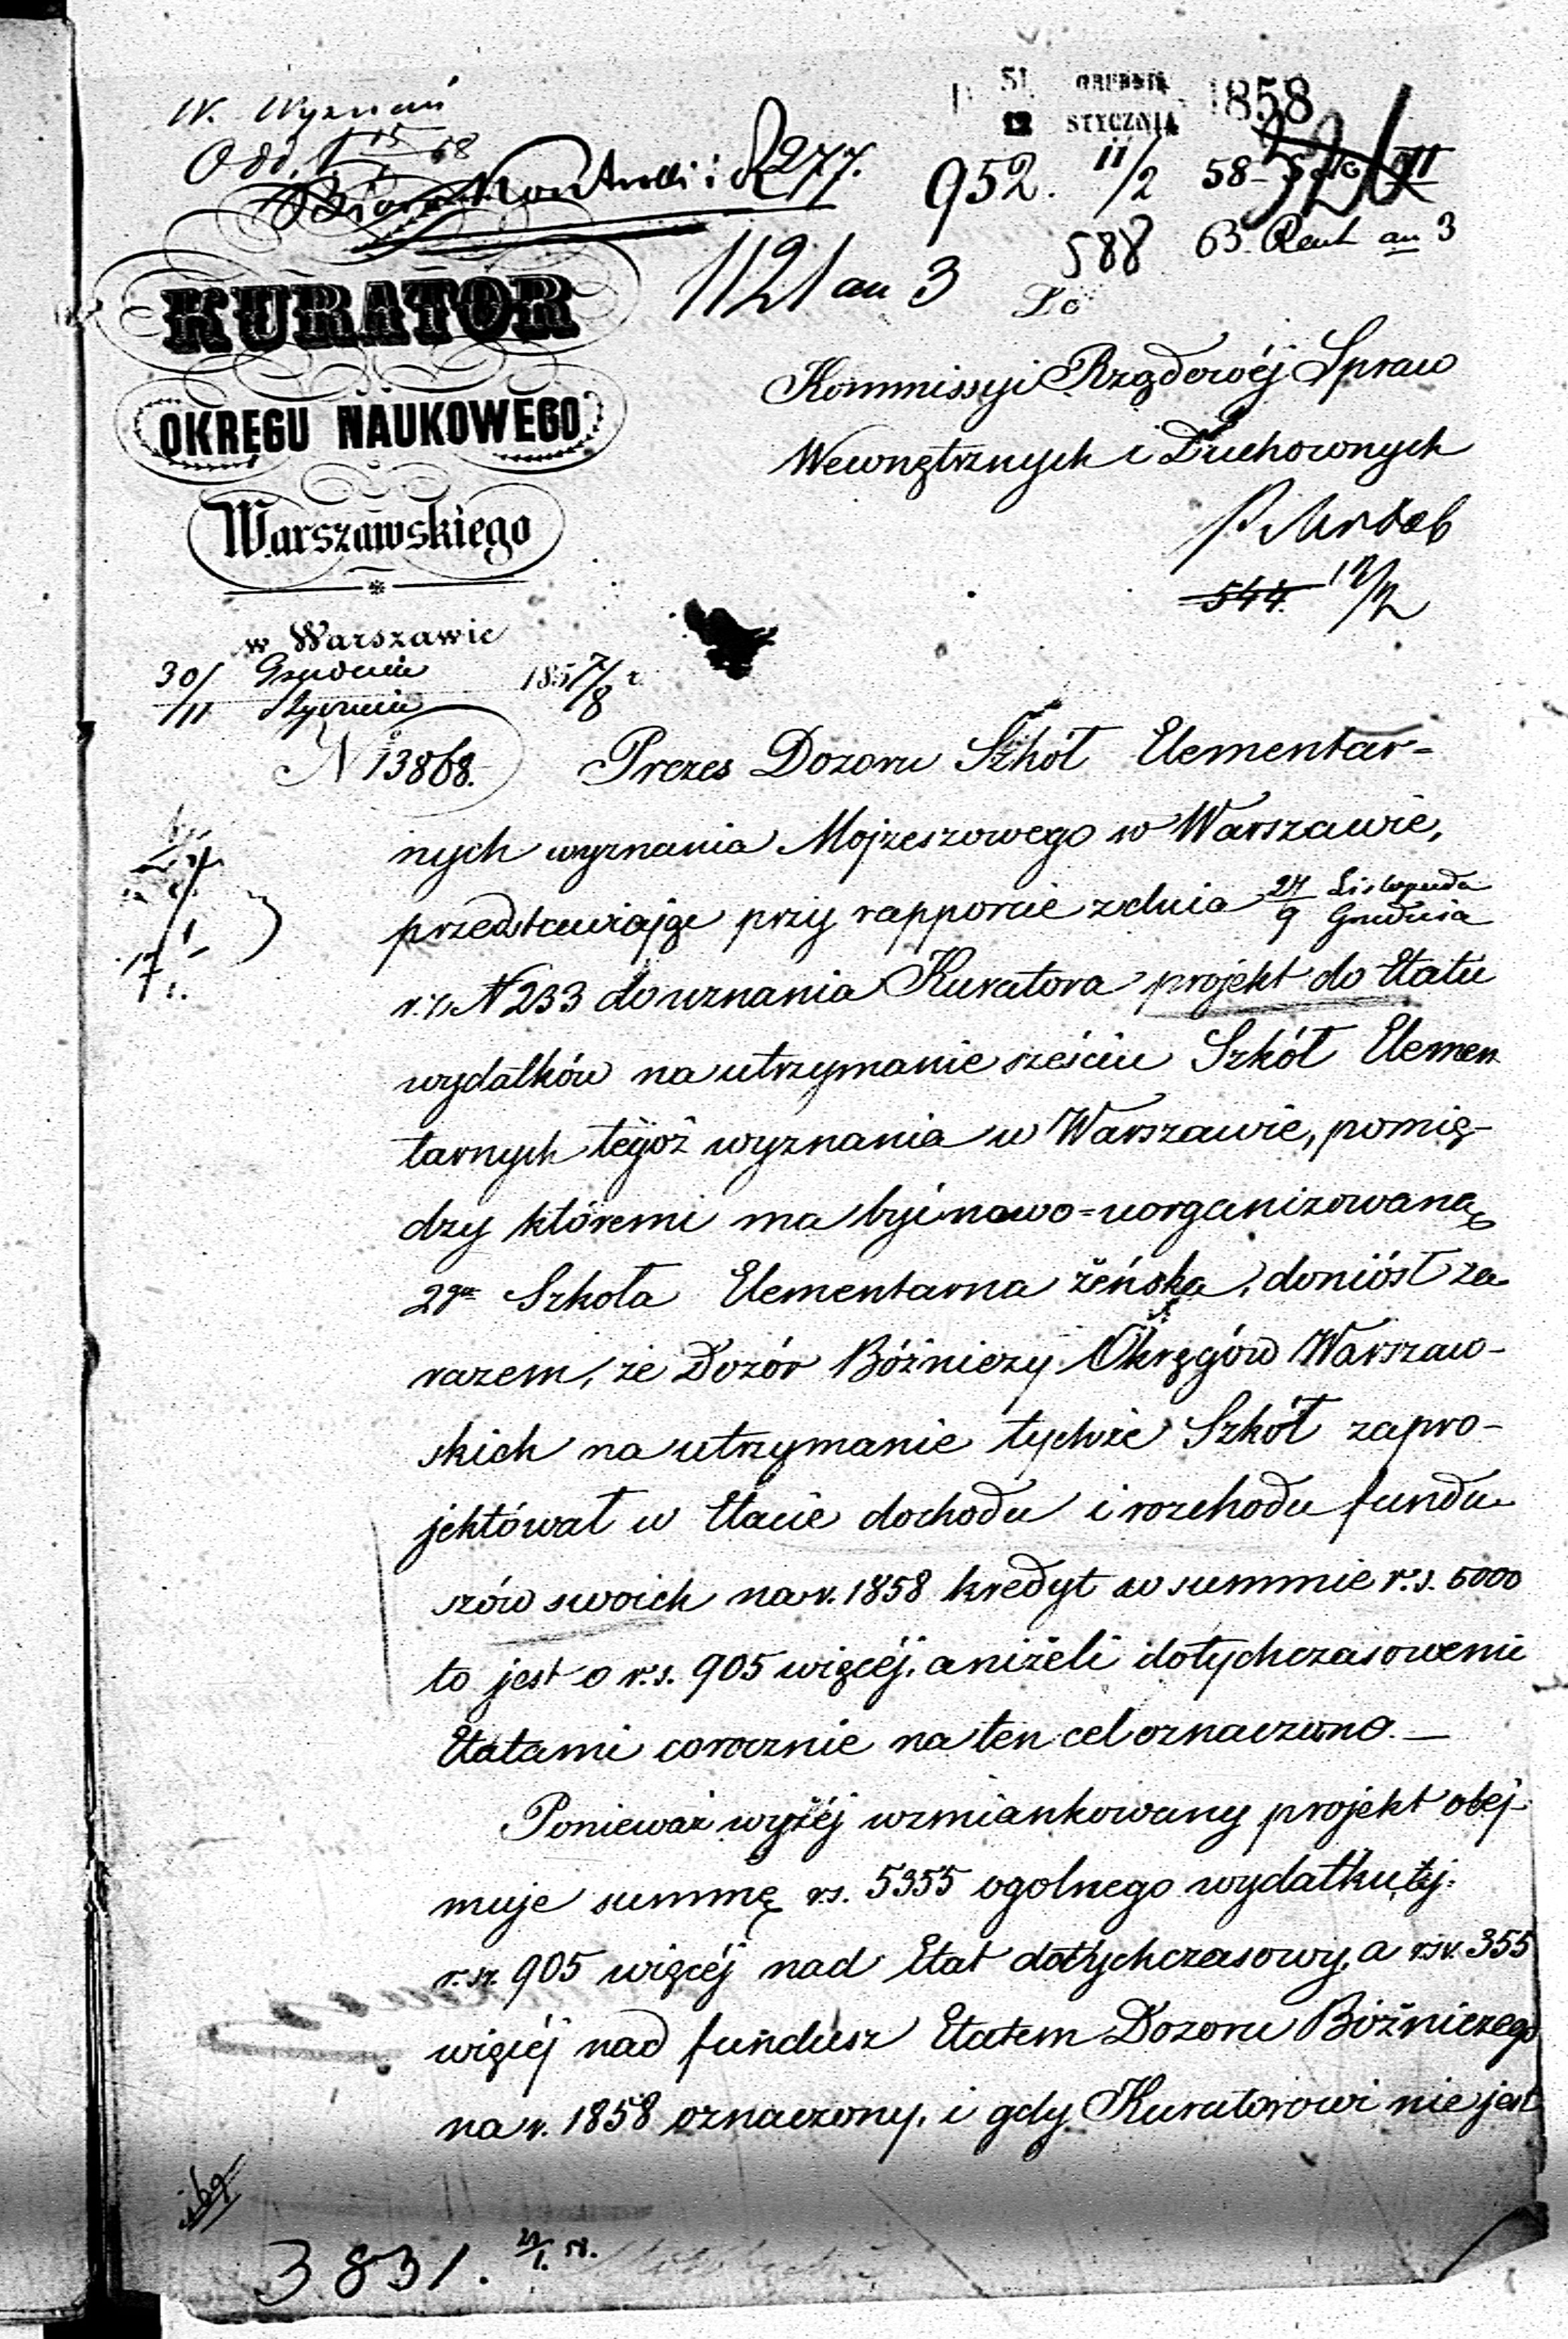 W. Wyznań
277.
31 GRUDNIA 1858
12 STYCZNIA
952. 11/2 58
588 63. Rent an 3
1121 an 3
Do
KURATOR
OKRĘGU NAUKOWEGO
Warszawskiego
Kommissyi Rządowéj Spraw
Wewnętrznych i Duchownych
544. 12/2
w Warszawie
30/ Grudnia 1857/8 r.
/11 Stycznia
N 13868.
Prezes Dozoru Szkół Elementar=
nych wyznania Mojżeszowego w Warszawie,
przedstawiając przy rapporcie z dnia 27/9 Listopada Grudnia
r. z. N 233 do uznania Kuratora projekt do Etatu
wydatków na utrzymanie sześciu Szkół Elemen
tarnych tegoż wyznania w Warszawie, pomię-
dzy któremi ma być nowo=uorganizowaną
2ga Szkoła Elementarna żeńska, doniósł za
razem, że Dozór Bóżniczy Okręgów Warszaw-
skich na utrzymanie tychże Szkół zapro-
jektówał w Etacie dochodu i rozchodu fundu
szów swoich na r. 1858 kredyt w summie r. s. 5000
to jest o r. s. 905 więcéj, aniżeli dotychczasowemi
Etatami corocznie na ten cel oznaczono. —
Ponieważ wyżéj wzmiankowany projekt obéj-
muje summę rs. 5355 ogolnego wydatku, tj.
r. sr. 905 więcéj nad Etat dotychczasowy, a rsr. 355
więcéj nad fundusz Etatem Dozoru Bóżniczego
na r. 1858 oznaczony, i gdy Kuratorowi nie jest
169
3831. 58.